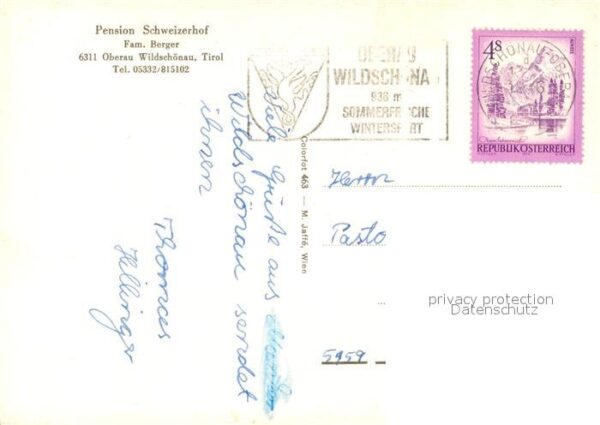 Pension Schweizerhof
Fam. Berger
6311 Oberau Wildschönau, Tirol
Tel. 05332/815102
OBERAU
WILDSCHÖNAU
936 m
SOMMERFRISCHE
WINTERSPORT
4 S
REPUBLIK ÖSTERREICH
Viele Grüße aus
Wildschönau sendet
ihnen
Thomas
Colorfot 463 — M. Jaffé, Wien
Herrn
Pasto
5959
privacy protection
Datenschutz